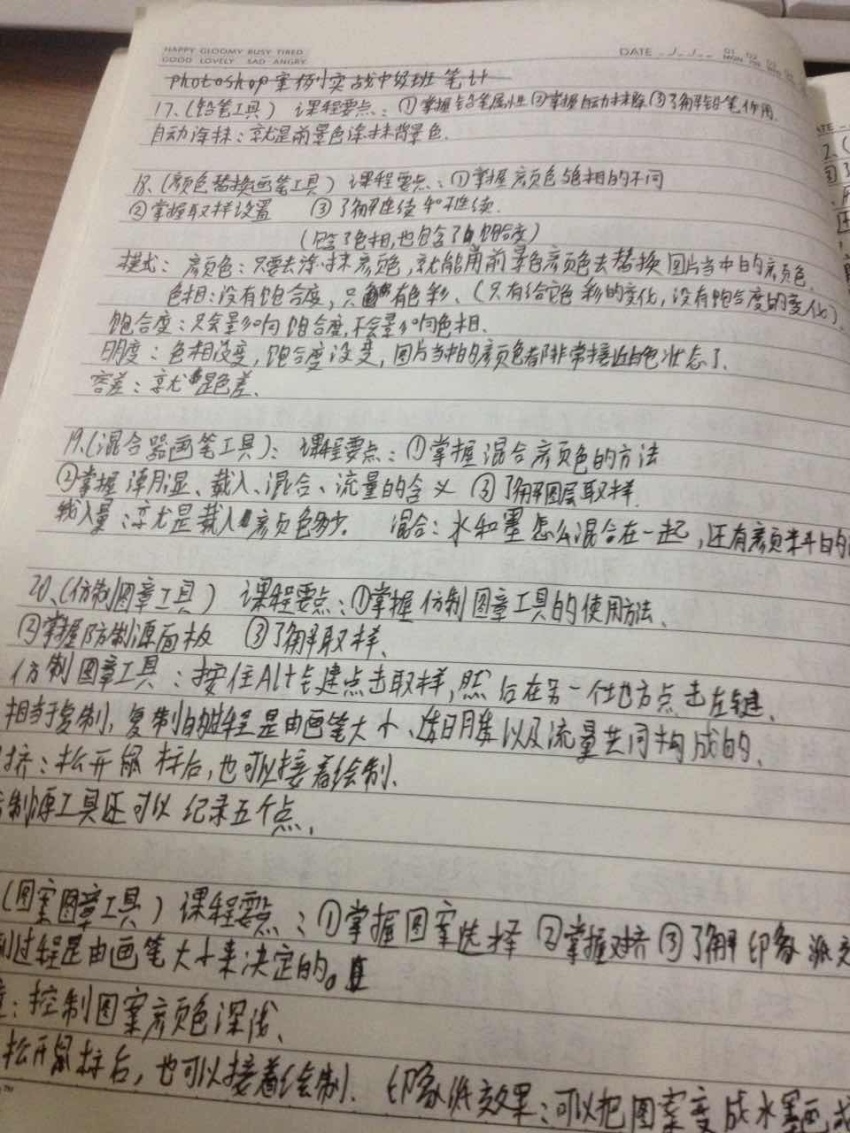 HAPPY GLOOMY BUSY TIRED
GOOD LOVELY SAD ANGRY
DATE
photoshop案例实战中级班笔计
17、(铅笔工具) 课程要点:①掌握铅笔属性②掌握自动抹除③了解铅笔作用.
自动涂抹:就是前景色涂抹背景色.
18、(颜色替换画笔工具) 课程要点:①掌握颜色色相的不同
②掌握取样设置 ③了解连续和不连续.
(包含了色相,也包含了饱合度)
模式:颜色:只要去涂抹颜色,就能用前景色颜色去替换图片当中的颜色.
色相:没有饱合度,只有色彩、(只有给它色彩的变化,没有饱合度的变化).
饱合度:只会影响饱合度,不会影响色相.
明度:色相没变,饱合度没变,图片当中的颜色都非常接近白色状态了.
容差:就是色差.
19、(混合器画笔工具):课程要点:①掌握混合颜色的方法
②掌握潮湿、载入、混合、流量的含义 ③了解图层取样.
载入量:就是载入颜色多少. 混合:水和墨怎么混合在一起,还有颜料的
20、(仿制图章工具) 课程要点:①掌握仿制图章工具的使用方法、
②掌握防制源面板 ③了解取样、
仿制图章工具:按住Alt键点击取样,然后在另一个地方点击左键、
相当于复制,复制的过程是由画笔大小、透明度以及流量共同构成的、
齐:松开鼠标后,也可以接着绘制、
制源工具还可以纪录五个点,
(图案图章工具) 课程要点:①掌握图案选择 ②掌握对齐③了解印象派
制过程是由画笔大小来决定的。
:控制图案颜色深浅、
松开鼠标后,也可以接着绘制. 印象派效果:可以把图案变成水墨画